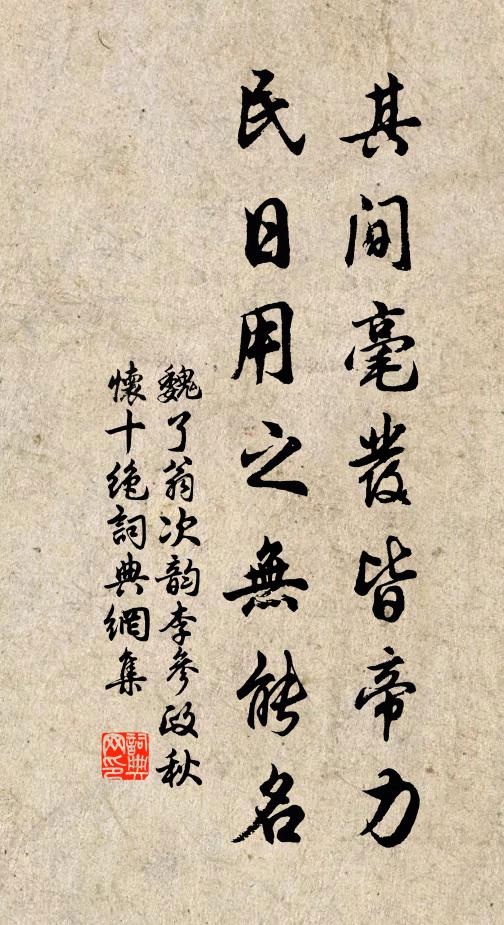 其間毫發皆帝力
民日用之無能名
魏了翁次韵李參政秋
懷十绝詞典網集
詞典网印